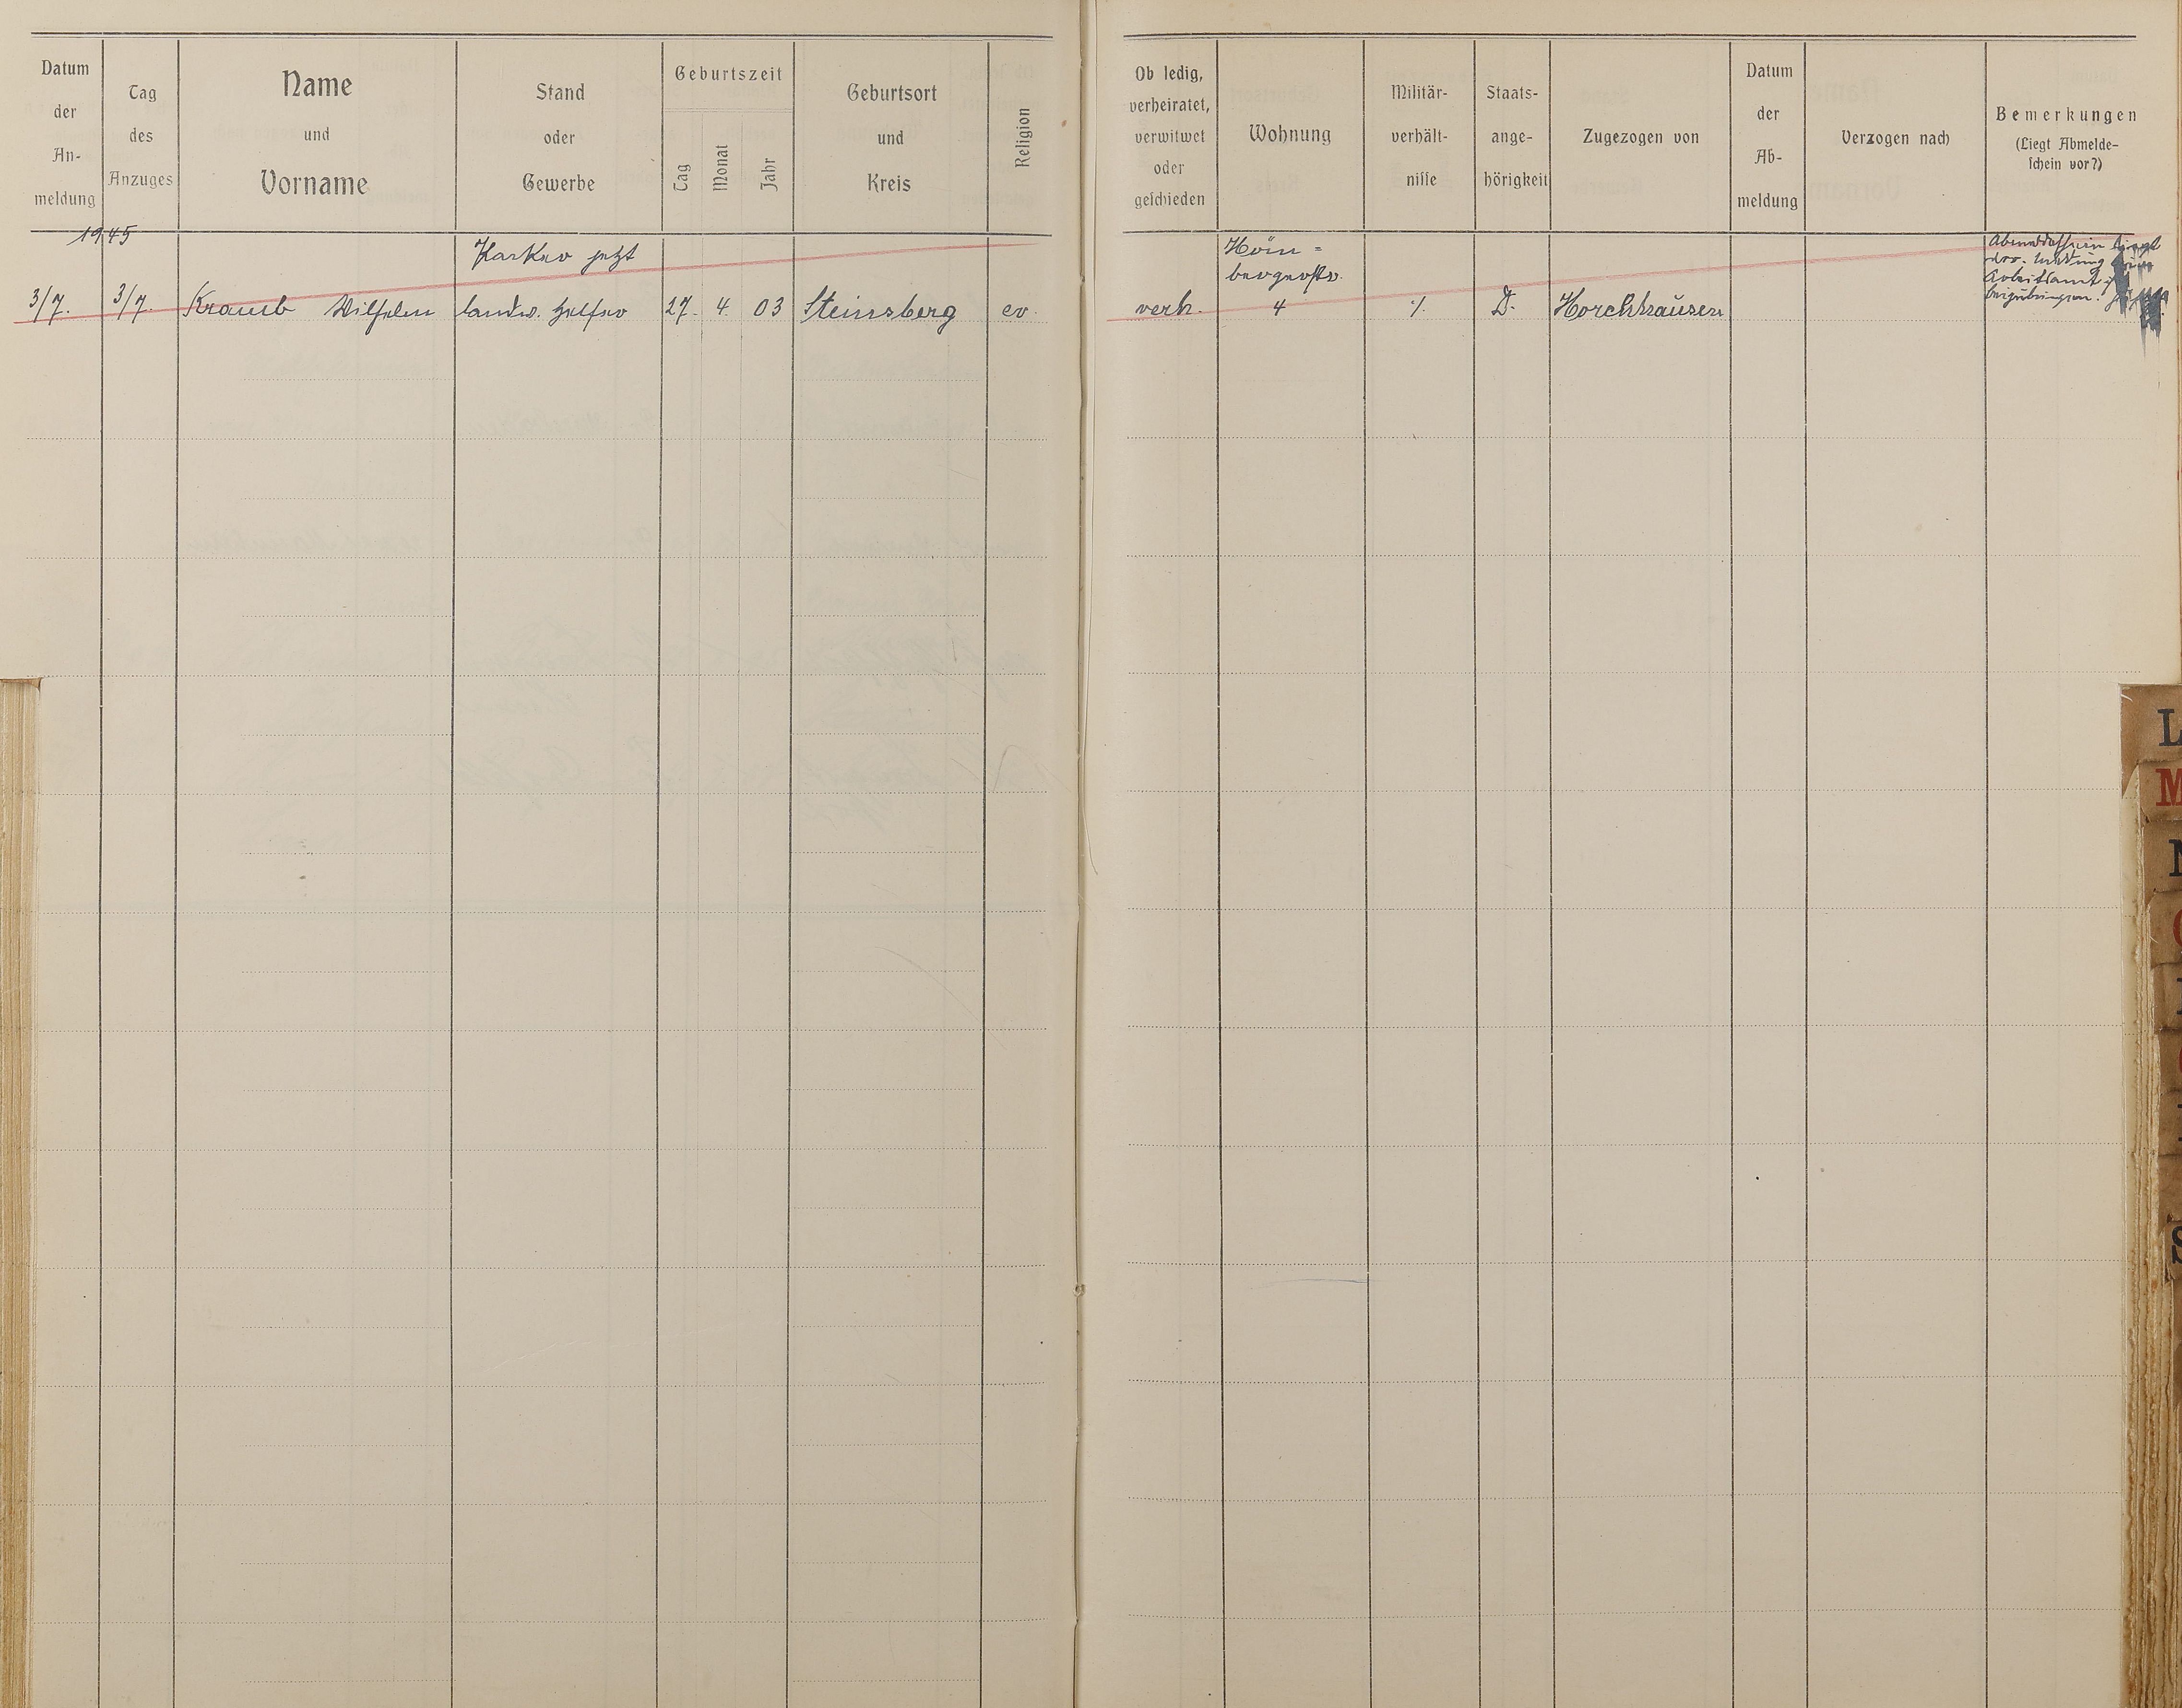 Datum der Anmeldung
Tag des Anzuges
Name und Vorname
Stand oder Gewerbe
Geburtszeit
Tag
Monat
Jahr
Geburtsort und Kreis
Religion
Ob ledig, verheiratet, verwitwet oder geschieden
Wohnung
Militär-verhält-nisse
Staats-ange-hörigkeit
Zugezogen von
Datum der Ab-meldung
Verzogen nach
Bemerkungen
(Liegt Abmelde-schein vor?)
1945
jetzt
3/7. 3/7. Kraub Wilhelm landw. Helfer 27. 4. 03 Steinsberg ev.
Höin-
bergerstr.
verh. 4 ⁒ D. Horchhausen
Abmeldeschein liegt
vor.
Arbeitsamt
beizubringen.
L
M
N
S